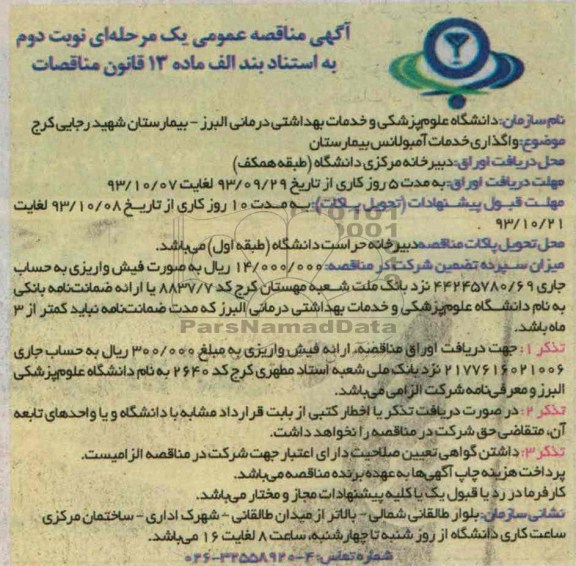 آگهی مناقصه عمومی یک مرحله‌ای نوبت دوم
به استناد بند الف ماده ۱۳ قانون مناقصات
نام سازمان: دانشگاه علوم پزشکی و خدمات بهداشتی درمانی البرز - بیمارستان شهید رجایی کرج
موضوع: واگذاری خدمات آمبولانس بیمارستان
محل دریافت اوراق: دبیرخانه مرکزی دانشگاه (طبقه همکف)
مهلت دریافت اوراق: به مدت ۵ روز کاری از تاریخ ۹۳/۰۹/۲۹ لغایت ۹۳/۱۰/۰۷
مهلت قبول پیشنهادات (تحویل پاکات): به مدت ۱۰ روز کاری از تاریخ ۹۳/۱۰/۰۸ لغایت
۹۳/۱۰/۲۱ .
محل تحویل پاکات مناقصه دبیرخانه حراست دانشگاه (طبقه اول) می‌باشد.
میزان سپرده تضمین شرکت در مناقصه: ۱۴/۰۰۰/۰۰۰ ریال به صورت فیش واریزی به حساب
جاری ۴۴۲۴۵۷۸۰/۶۹ نزد بانک ملت شعبه مهستان کرج کد ۸۸۳۷/۷ یا ارائه ضمانت‌نامه بانکی
به نام دانشگاه علوم پزشکی و خدمات بهداشتی درمانی البرز که مدت ضمانت‌نامه نباید کمتر از ۳
ماه باشد.
ParsNamadData
تذکر ۱: جهت دریافت اوراق مناقصه، ارائه فیش واریزی به مبلغ ۳۰۰/۰۰۰ ریال به حساب جاری
۲۱۷۷۶۱۶۰۲۱۰۰۶ نزد بانک ملی شعبه استاد مطهری کرج کد ۲۶۴۰ به نام دانشگاه علوم پزشکی
البرز و معرفی‌نامه شرکت الزامی می‌باشد.
تذکر ۲: در صورت دریافت تذکر یا اخطار کتبی از بابت قرارداد مشابه با دانشگاه و یا واحدهای تابعه
آن، متقاضی حق شرکت در مناقصه را نخواهد داشت.
تذکر ۳: داشتن گواهی تعیین صلاحیت دارای اعتبار جهت شرکت در مناقصه الزامیست.
پرداخت هزینه چاپ آگهی‌ها به عهده برنده مناقصه می‌باشد.
کارفرما در رد یا قبول یک یا کلیه پیشنهادات مجاز و مختار می‌باشد.
نشانی سازمان: بلوار طالقانی شمالی - بالاتر از میدان طالقانی - شهرک اداری - ساختمان مرکزی
ساعت کاری دانشگاه از روز شنبه تا چهارشنبه، ساعت ۸ لغایت ۱۶ می‌باشد.
شماره تماس: ۴-۳۲۵۵۸۹۲۰-۰۲۶